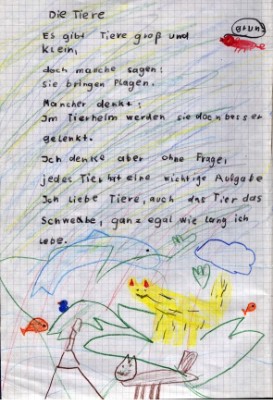 Die Tiere
Es gibt Tiere groß und
klein,
doch manche sagen:
sie bringen Plagen.
Mancher denkt:
Im Tierheim werden sie doch besser
gelenkt.
Ich denke aber ohne Frage,
jedes Tier hat eine wichtige Aufgabe
Ich liebe Tiere, auch das Tier das
Schwebe, ganz egal wie lang ich
lebe.